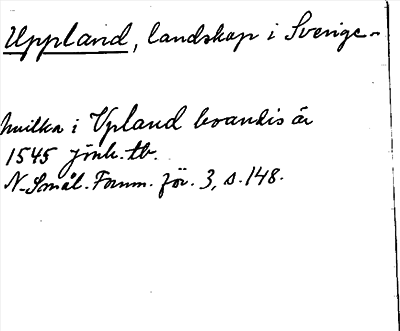 Uppland, landskap i Sverige.
hvilka i Vpland boandis är
1545 Jönk. tb.
N. Smål. Fornm. för. 3, s. 148.